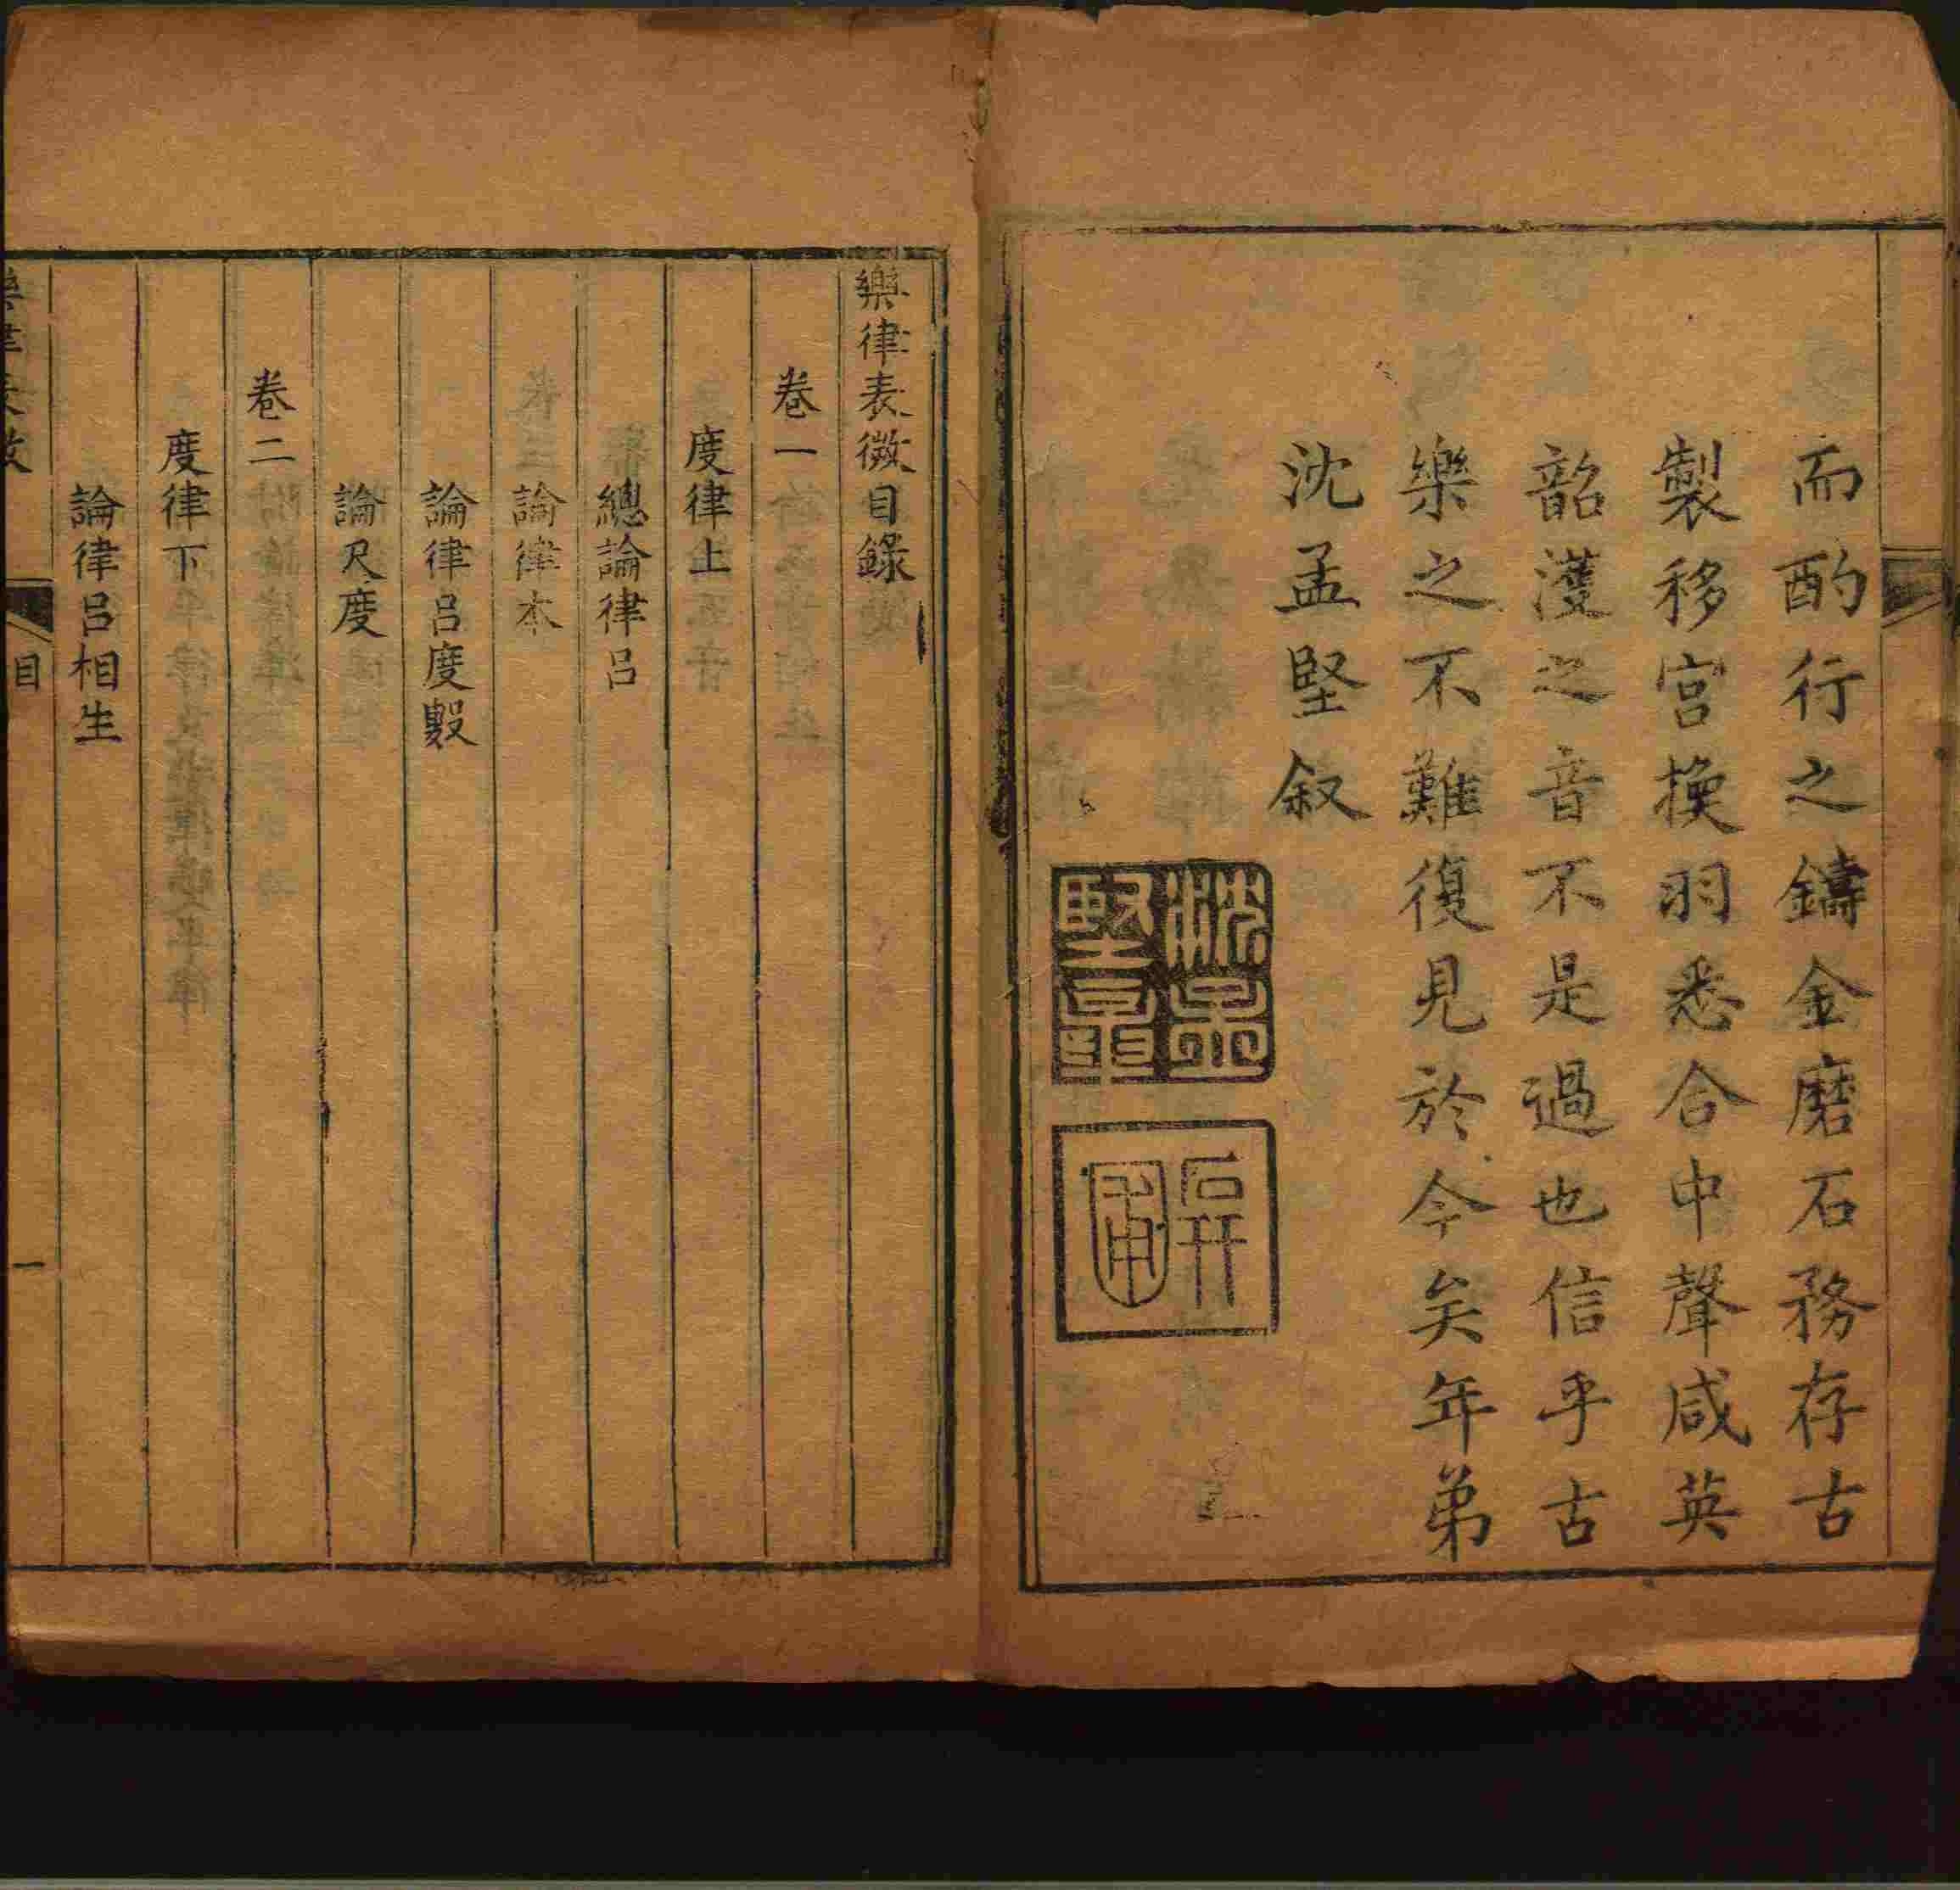 而酌行之鑄金磨石務存古
製移宮換羽悉合中聲咸英
韶濩之音不是過也信乎古
樂之不難復見於今矣年弟
沈孟堅叙
沈孟堅印
樂律表微目錄
卷一
度律上
總論律呂
論律本
論律呂度數
論尺度
卷二
度律下
論律呂相生
樂律表微
目
一